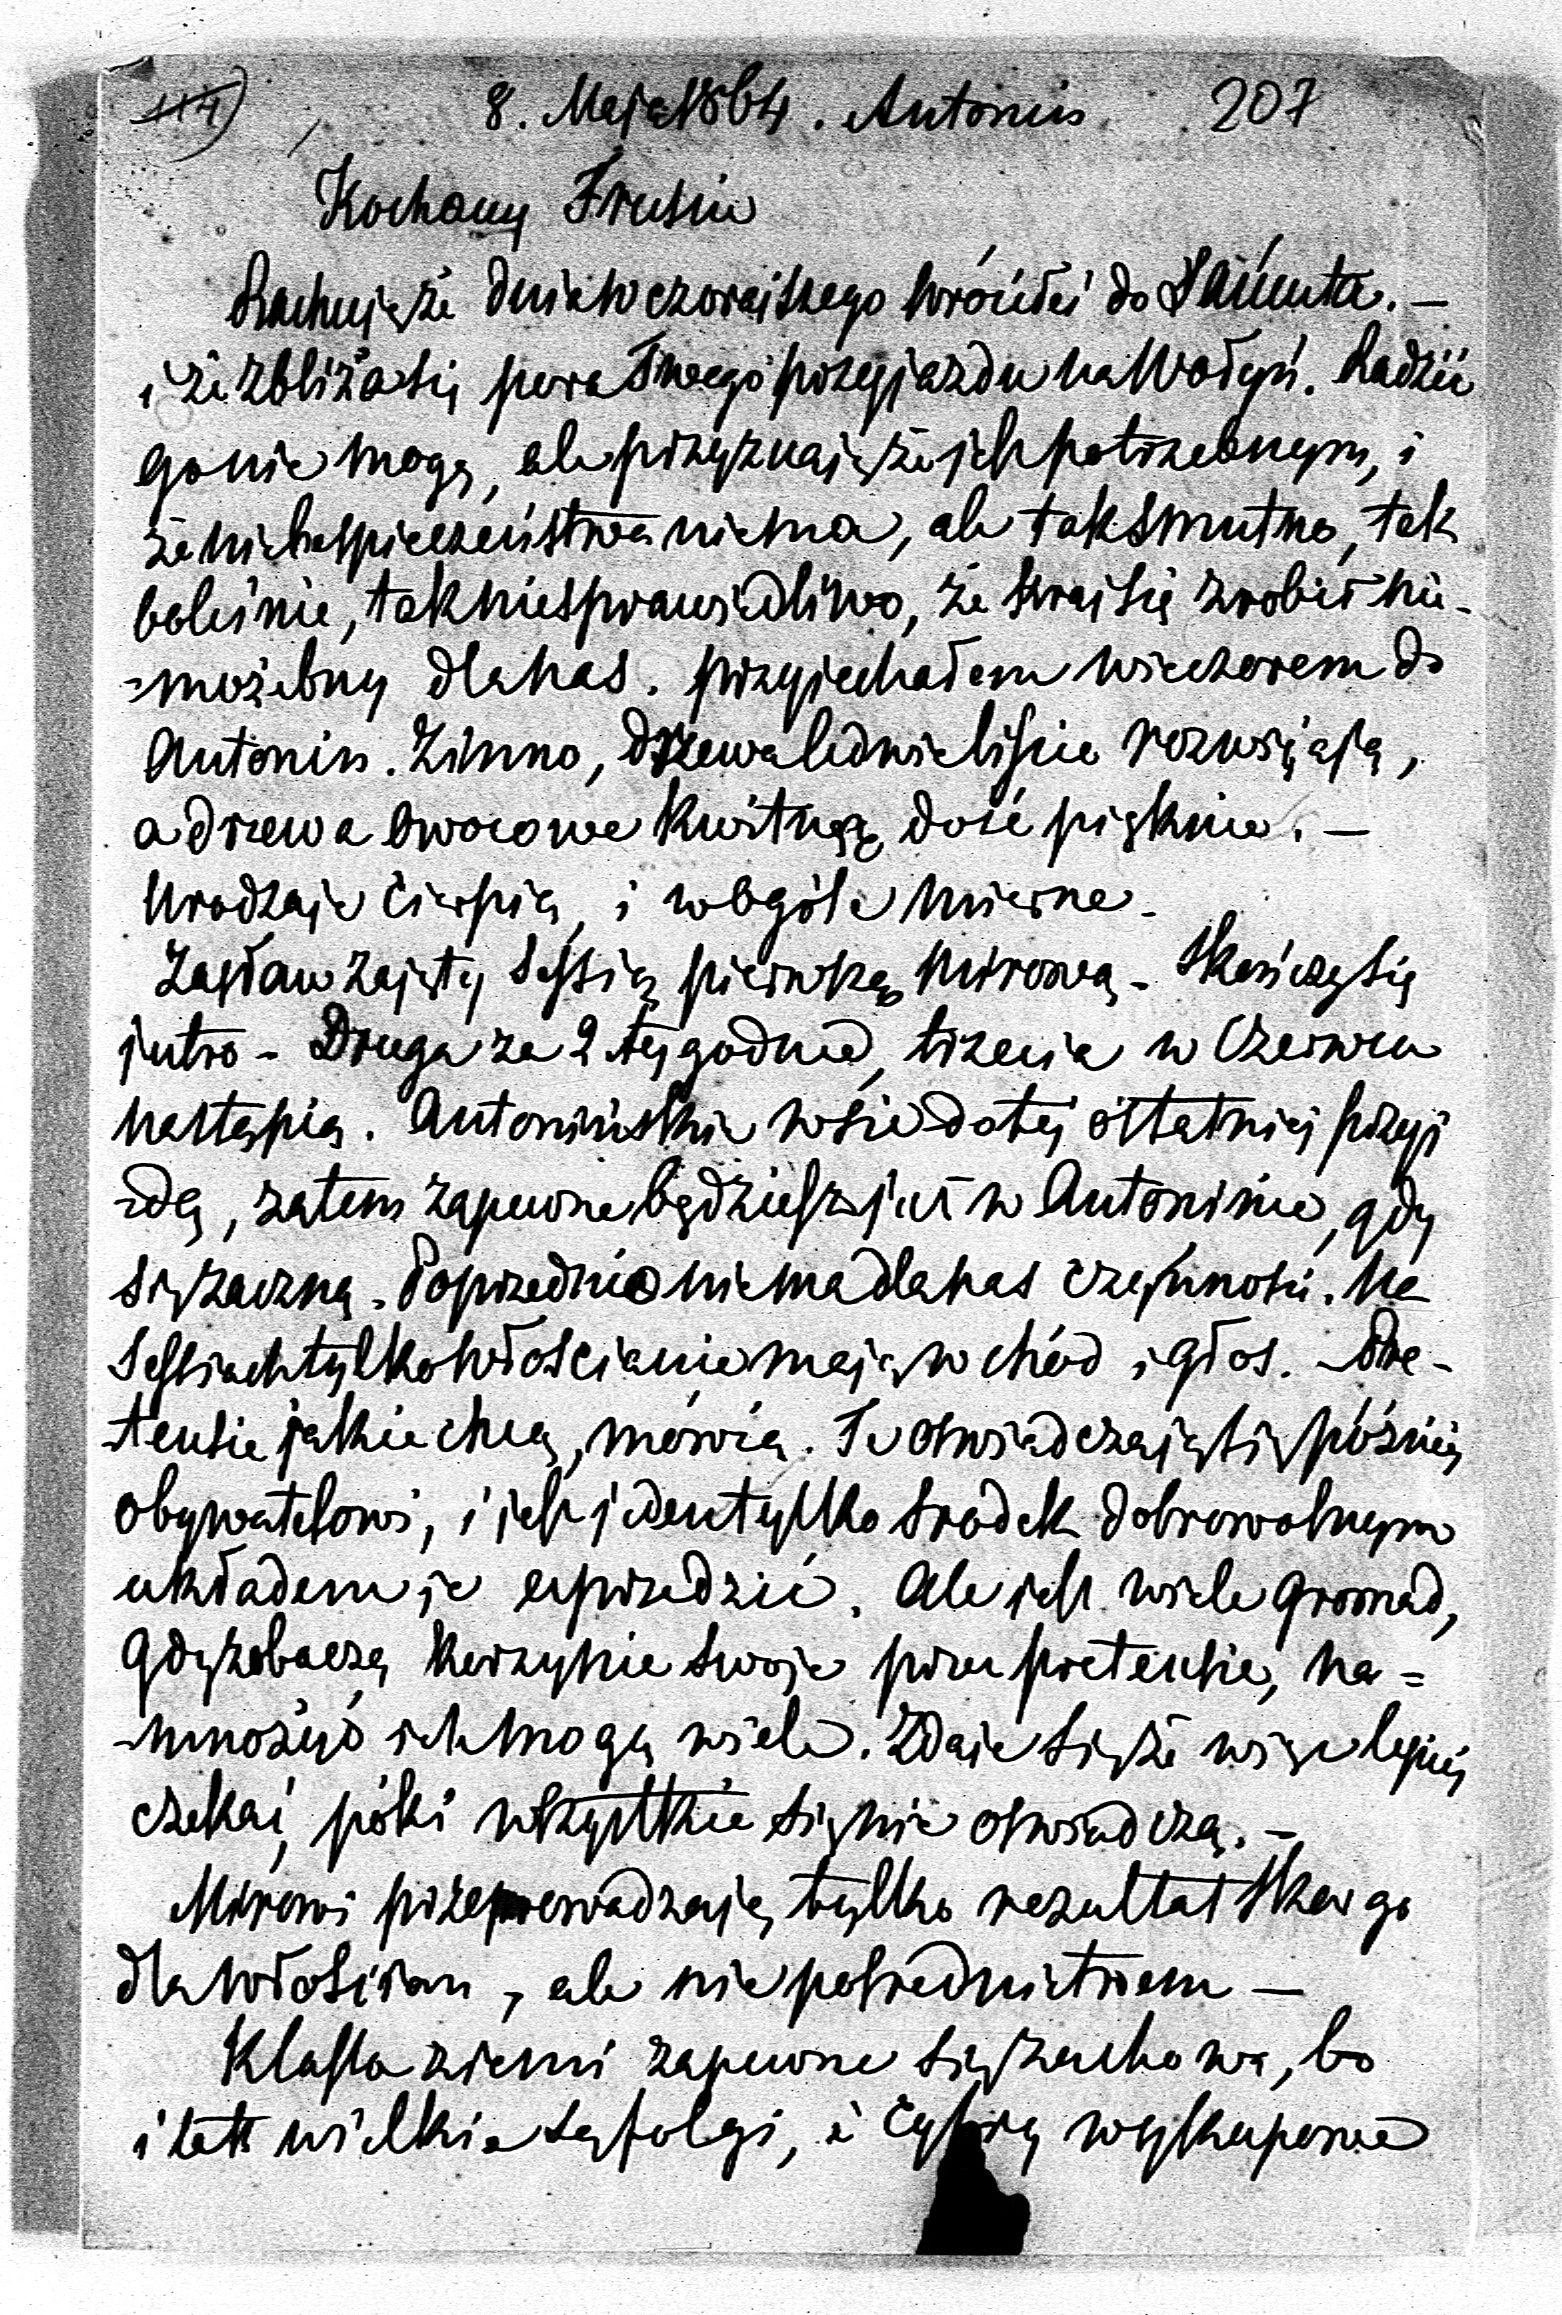 114) 8. Maja 1864. Antonin 207
Kochany Frusiu
Rachuję że dnia wczorajszego wróciłeś do Łańcuta. —
i że zbliża się pora Twego przyjazdu na Wołyń. Radzić
go nie mogę, ale przyznaję że jest potrzebnym, i
że niebespieczeństwa niema, ale tak smutno, tak
boleśnie, tak niesprawiedliwo, że kraj się zrobił nie-
-możebny dla nas. przyjechałem wieczorem do
Antonin. Zimno, drzewa ledwie liście rozwijają,
a drzewa owocowe kwitną dość pięknie. —
Urodzaje cierpią, i wogóle mierne.
Zasław zajęty sessią pierwszą mirową - Skończy się
jutro - Druga za 2 tygodnie, trzecia w Czerwcu
nastąpią. Antonińskie wsie do tej ostatniej przyj
-dą, zatem zapewne będziesz już w Antoninie, gdy
się zaczną. Poprzednio niema dla nas czynności. Na
sessiach tylko włościanie mają wchód i głos. - Pre-
-tensie jakie chcą, mówią. Te oświadczają się później
obywatelowi, i jest jeden tylko środek dobrowolnym
układem je uprzedzić. Ale jest wiele gromad,
gdy zobaczą korzyśnie swoje prze pretensie, na=
-mnożyć ich mogą wiele. Zdaje się że więc lepiej
czekaj, póki wszystkie się nie oświadczą. —
Mirowi przeprowadzają tylko rezultat skarg
dla włościan, ale nie pośrednictwem —
Klassa ziemi zapewne się zachowa, bo
i tak wielkie są folgi, i cyfrą wyskupowe